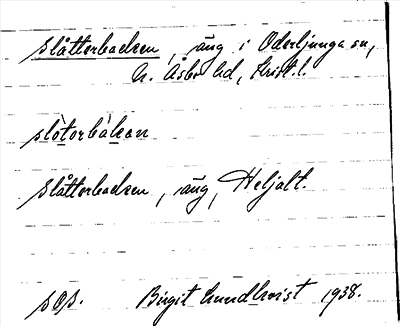 Slåtterbacken, äng i Oderljunga sn,
N. Åsbo hd, Krist. l.
slòtorbàkan
Slåtterbacken, äng, Heljalt.
SOS. Birgit Lundkvist 1938.